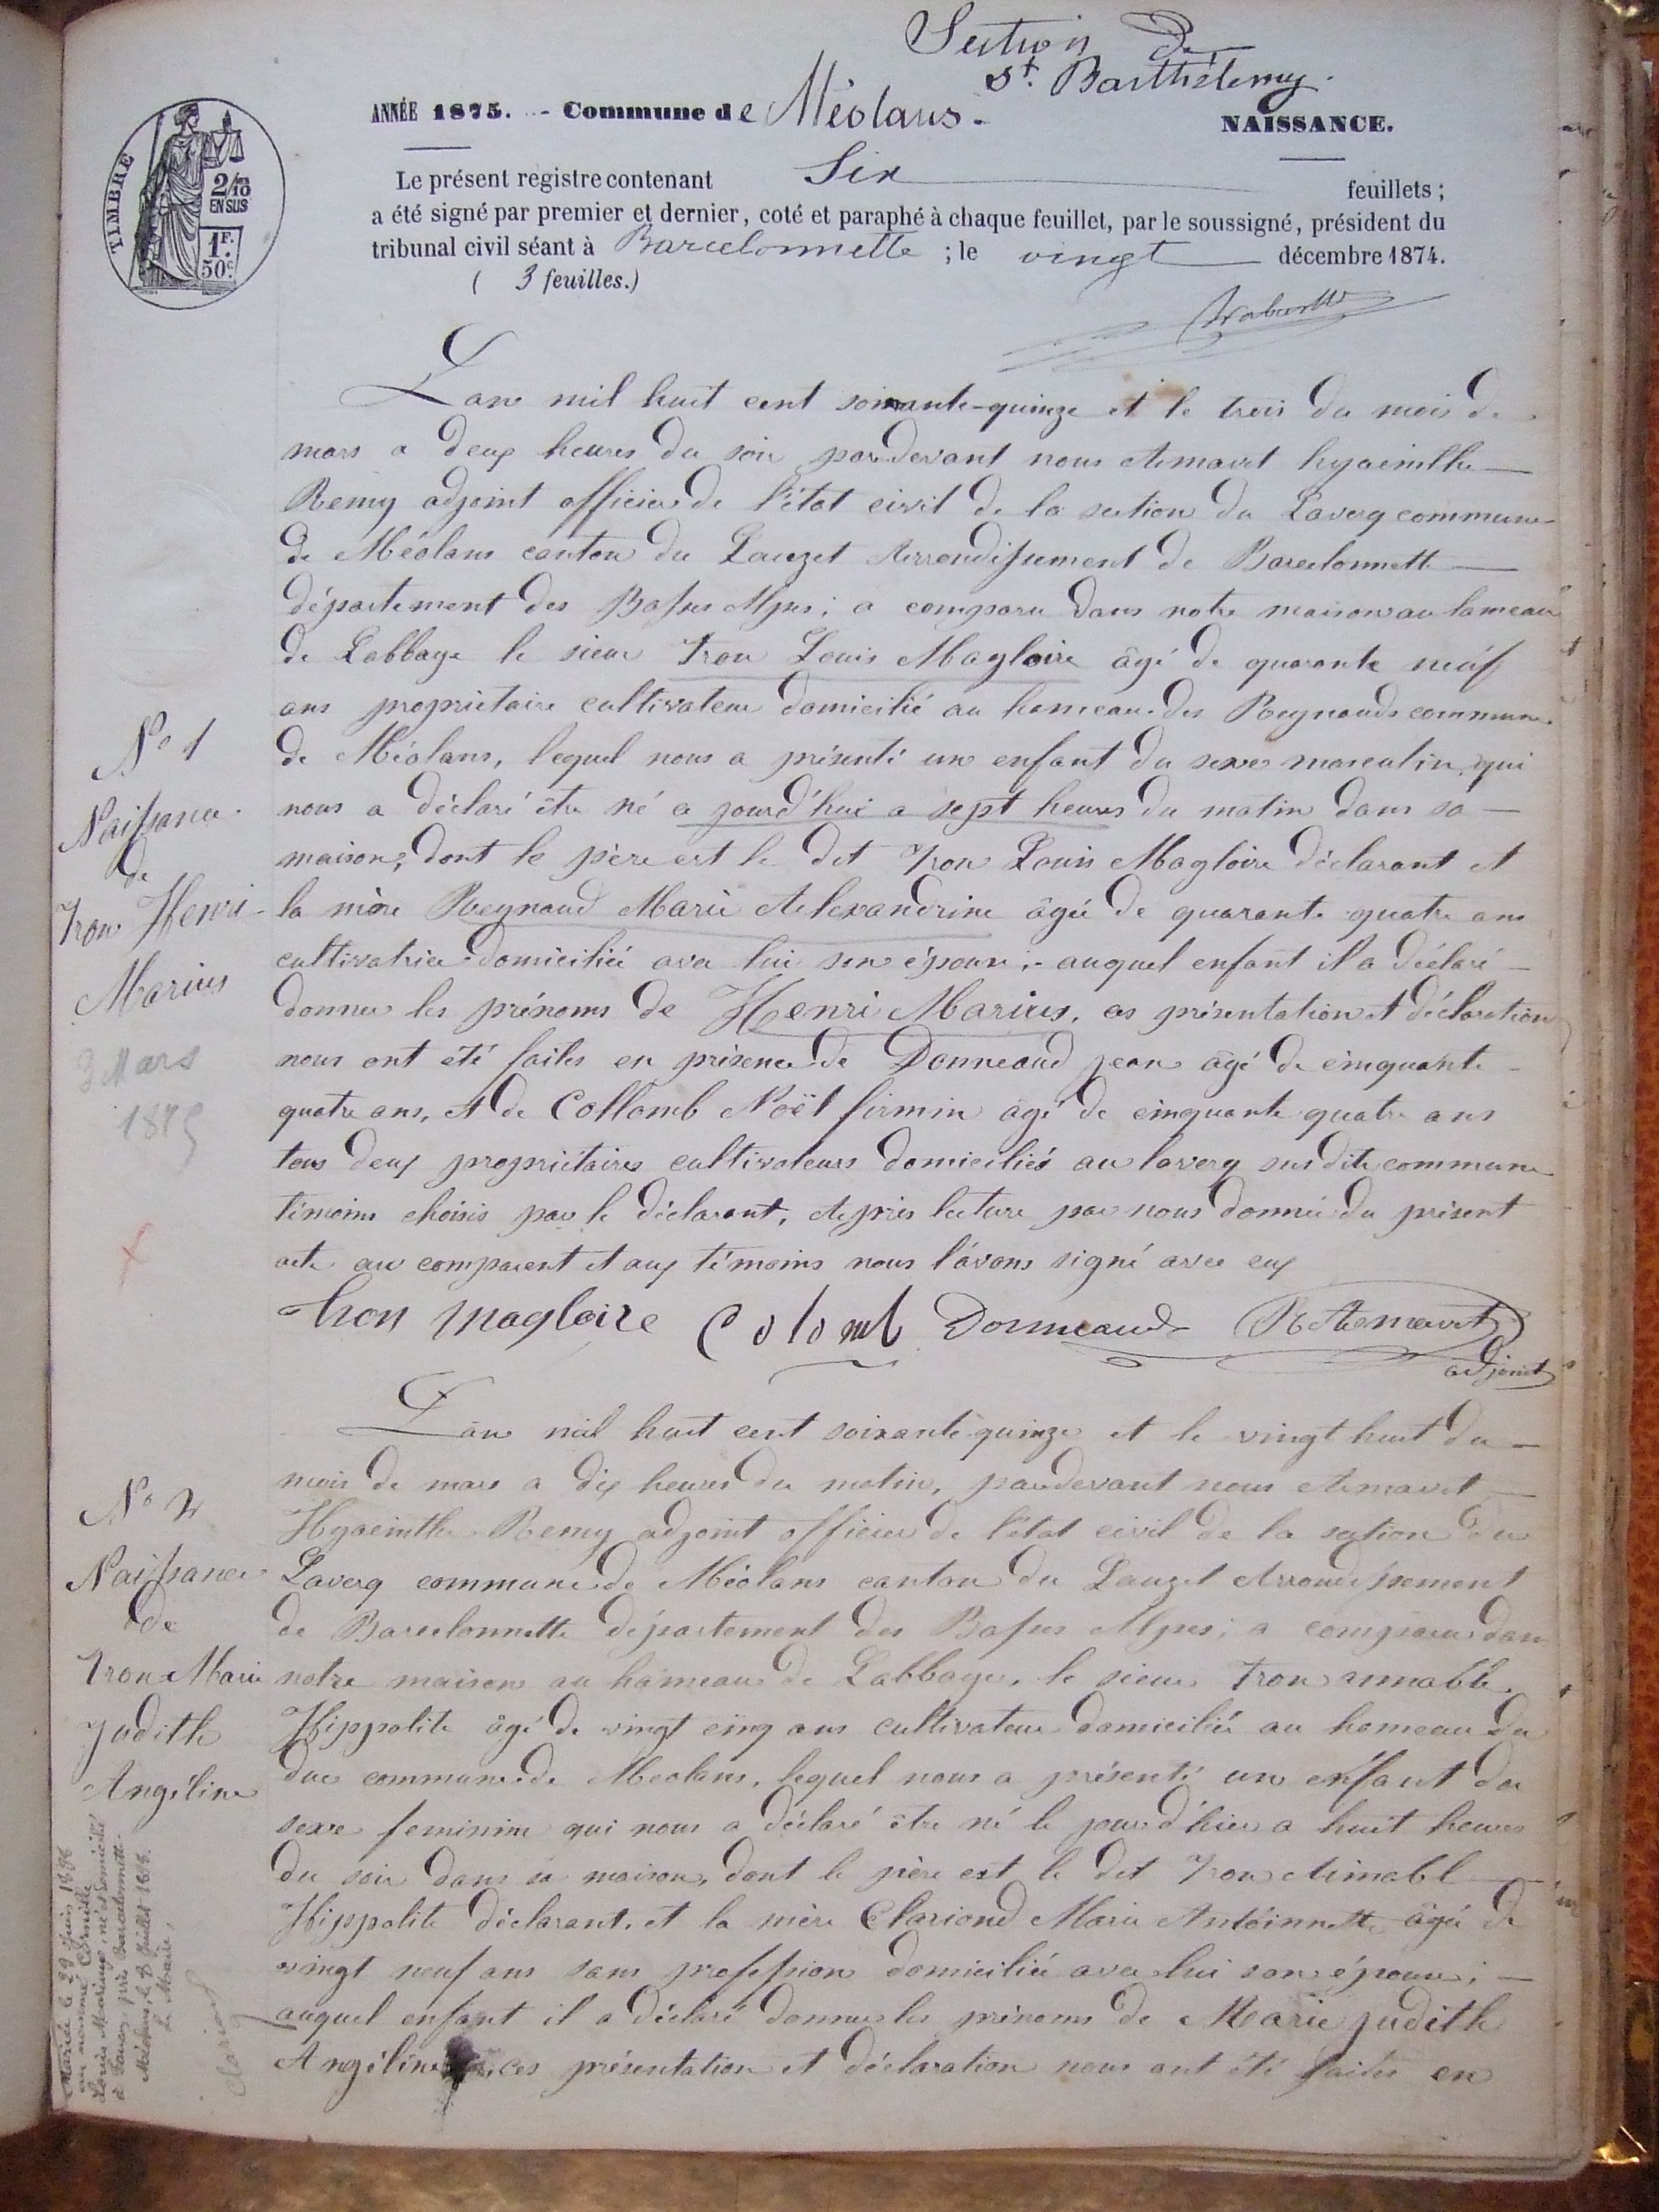 Section De
St. Barthélemy.
ANNÉE 1875. - Commune de Méolans.
NAISSANCE.
TIMBRE
2/10es
EN SUS
1F.
50c.
Le présent registre contenant Six feuillets;
a été signé par premier et dernier, coté et paraphé à chaque feuillet, par le soussigné, président du
tribunal civil séant à Barcelonnette ; le vingt décembre 1874.
( 3 feuilles.)
L'an mil huit cent soixante-quinze et le trois du mois de
mars a deux heures du soir pardevant nous hyacinthe
Remy adjoint officier de l'état civil de la section du Laverq commune
de Méolans canton du Lauzet Arrondissement de Barcelonnette
département des Basses Alpes; a comparu dans notre maison au hameau
de Labbaye le sieur Tron Louis Magloire âgé de quarante neuf
ans propriétaire cultivateur domicilié au hameau des Reynauds commune
de Méolans, lequel nous a présenté un enfant du sexe masculin, qui
nous a déclaré être né a jourd'hui a sept heures du matin dans sa
maison, dont le père est le dit Tron Louis Magloire déclarant et
la mère Reynaud Marie Alexandrine âgée de quarante quatre ans
cultivatrice domiciliée avec lui son épouse; auquel enfant il a déclaré
donner les prénoms de Henri Marius, ces présentation et déclaration
nous ont été faites en présence de Donneaud jean âgé de cinquante
quatre ans, et de Collomb Noël firmin âgé de cinquante quatre ans
tous deux propriétaires cultivateurs domiciliés au laverq susdite commune
témoins choisis par le déclarant, Après lecture par nous donnée du présent
acte au comparent et aux témoins nous l'avons signé avec eux
No 1
Naissance
de
Tron Henri
Marius
3 Mars
1875
tron magloire Colomb Donneaud
adjoint
L'an mil huit cent soixante-quinze et le vingt huit du
mois de mars a dix heures du matin, pardevant nous
Hyacinthe Remy adjoint officier de l'état civil de la section du
Laverq commune de Méolans canton du Lauzet Arrondissement
de Barcelonnette département des Basses Alpes; a comparu dans
notre maison au hameau de Labbaye, le sieur Tron amable
Hippolite âgé de vingt cinq ans cultivateur domicilié au hameau du
duc commune de Meolans, lequel nous a présenté un enfant du
sexe feminin qui nous a déclaré être né le jour d'hier a huit heures
du soir dans sa maison, dont le père est le dit Tron Aimabl
Hippolite déclarant, et la mère Clariond Marie Antoinette âgée de
vingt neuf ans sans profession domiciliée avec lui son épouse;
auquel enfant il a déclaré donner les prénoms de Marie judith
Angéline, ces présentation et déclaration nous ont été faites en
No 2
Naissance
de
Tron Marie
Judith
Angéline
Mariée le 29 juin 1898
au nommé
Louis né et domicilié
à près Barcelonnette.
Méolans, le 8 Juillet 1898.
Le Maire,
Clariond